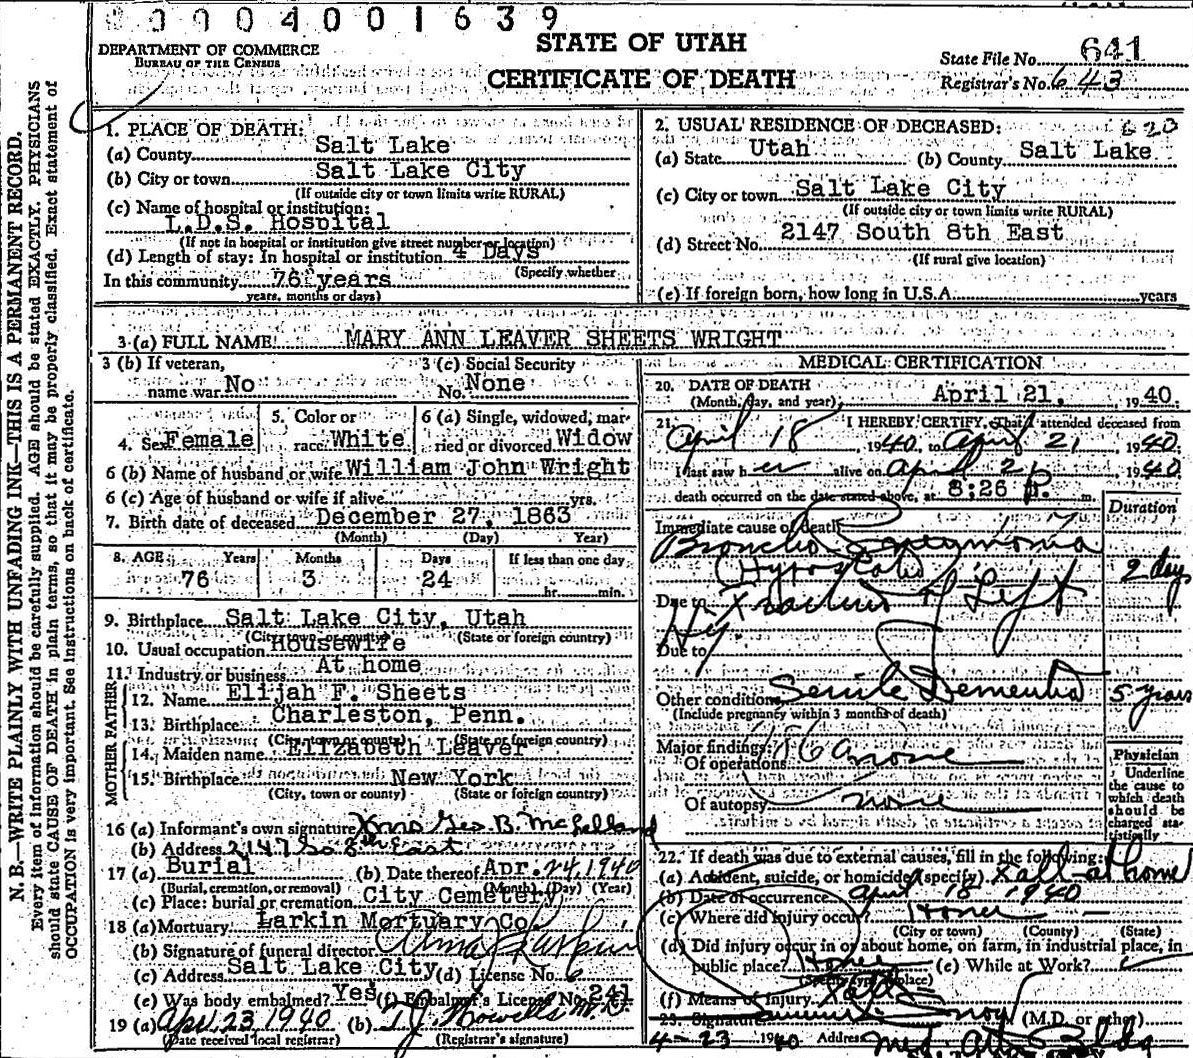 0004001639
DEPARTMENT OF COMMERCE
BUREAU OF THE CENSUS
STATE OF UTAH
CERTIFICATE OF DEATH
State File No. 641
Registrar's No. 643
N. B.—WRITE PLAINLY WITH UNFADING INK—THIS IS A PERMANENT RECORD.
Every item of information should be carefully supplied. AGE should be stated EXACTLY. PHYSICIANS
should state CAUSE OF DEATH in plain terms, so that it may be properly classified. Exact statement of
OCCUPATION is very important. See instructions on back of certificate.
1. PLACE OF DEATH:
(a) County Salt Lake
(b) City or town Salt Lake City
(If outside city or town limits write RURAL)
(c) Name of hospital or institution:
L.D.S. Hospital
(If not in hospital or institution give street number or location)
(d) Length of stay: In hospital or institution 4 Days
(Specify whether
In this community 76 years
years, months or days)
2. USUAL RESIDENCE OF DECEASED: 620
(a) State Utah (b) County Salt Lake
(c) City or town Salt Lake City
(If outside city or town limits write RURAL)
(d) Street No. 2147 South 8th East
(If rural give location)
(e) If foreign born, how long in U.S.A. years
3 (a) FULL NAME MARY ANN LEAVER SHEETS WRIGHT
3 (b) If veteran,
name war No
3 (c) Social Security
No. None
4. Sex Female
5. Color or
race White
6 (a) Single, widowed, mar-
ried or divorced Widow
6 (b) Name of husband or wife William John Wright
6 (c) Age of husband or wife if alive yrs.
7. Birth date of deceased December 27, 1863
(Month) (Day) Year)
8. AGE Years Months Days If less than one day
76 3 24 hr. min.
9. Birthplace Salt Lake City, Utah
(City town or county) (State or foreign country)
10. Usual occupation Housewife
11. Industry or business At home
FATHER
12. Name Elijah F. Sheets
13. Birthplace Charleston, Penn.
(City town or county) (State or foreign country)
MOTHER
14. Maiden name Elizabeth Leaver
15. Birthplace New York
(City, town or county) (State or foreign country)
16 (a) Informant's own signature Mrs Geo. B. McLelland
(b) Address 2147 So 8th East
17 (a) Burial (b) Date thereof Apr. 24, 1940
(Burial, cremation, or removal) (Month) (Day) (Year)
(c) Place: burial or cremation City Cemetery
18 (a) Mortuary Larkin Mortuary Co.
(b) Signature of funeral director Larkin
(c) Address Salt Lake City (d) License No. 6
(e) Was body embalmed? Yes (f) Embalmer's License No. 241
19 (a) Apr. 23, 1940 (b) T.J. Howells M.D.
(Date received local registrar) (Registrar's signature)
MEDICAL CERTIFICATION
20. DATE OF DEATH
(Month, day, and year) April 21, 1940
21. I HEREBY CERTIFY, That I attended deceased from
April 18, 1940, to April 21, 1940
I last saw her alive on April 21 1940
death occurred on the date stated above, at 8:26 P. m.
Duration
Immediate cause of death
Broncho Pneumonia
(Hypostatic) 2 days
Due to Fracture of Left
Hip.
Due to
Other conditions Senile Dementia 5 years
(Include pregnancy within 3 months of death)
Major findings:
Of operations none
Of autopsy none
Physician
Underline
the cause to
which death
should be
charged sta-
tistically
22. If death was due to external causes, fill in the following:
(a) Accident, suicide, or homicide (specify) Fall at home
(b) Date of occurrence April 18 1940
(c) Where did injury occur? Home
(City or town) (County) (State)
(d) Did injury occur in or about home, on farm, in industrial place, in
public place? Home (e) While at Work?
(Specify type of place)
(f) Means of Injury Fall
23. Signature Snow (M.D. or other)
4-23 1940 Address Med. Arts Bldg